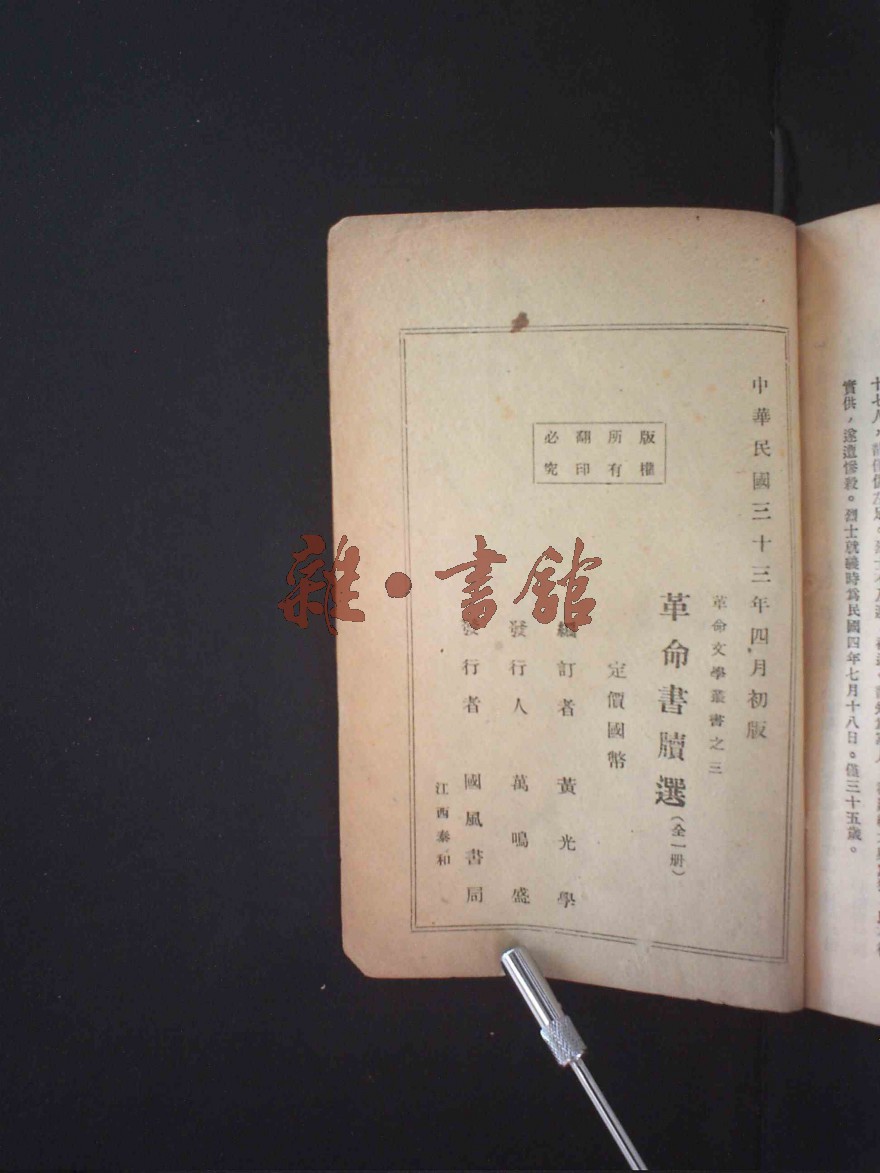 實供，遂遭慘殺。烈士就義時爲民國四年七月十八日。僅三十五歲。
中華民國三十三年四月初版
革命文學叢書之三
革命書牘選（全一册）
定價國幣
版權
所有
翻印
必究
編訂者 黃光學
發行人 萬鳴盛
發行者 國風書局
江西泰和
雜·書館